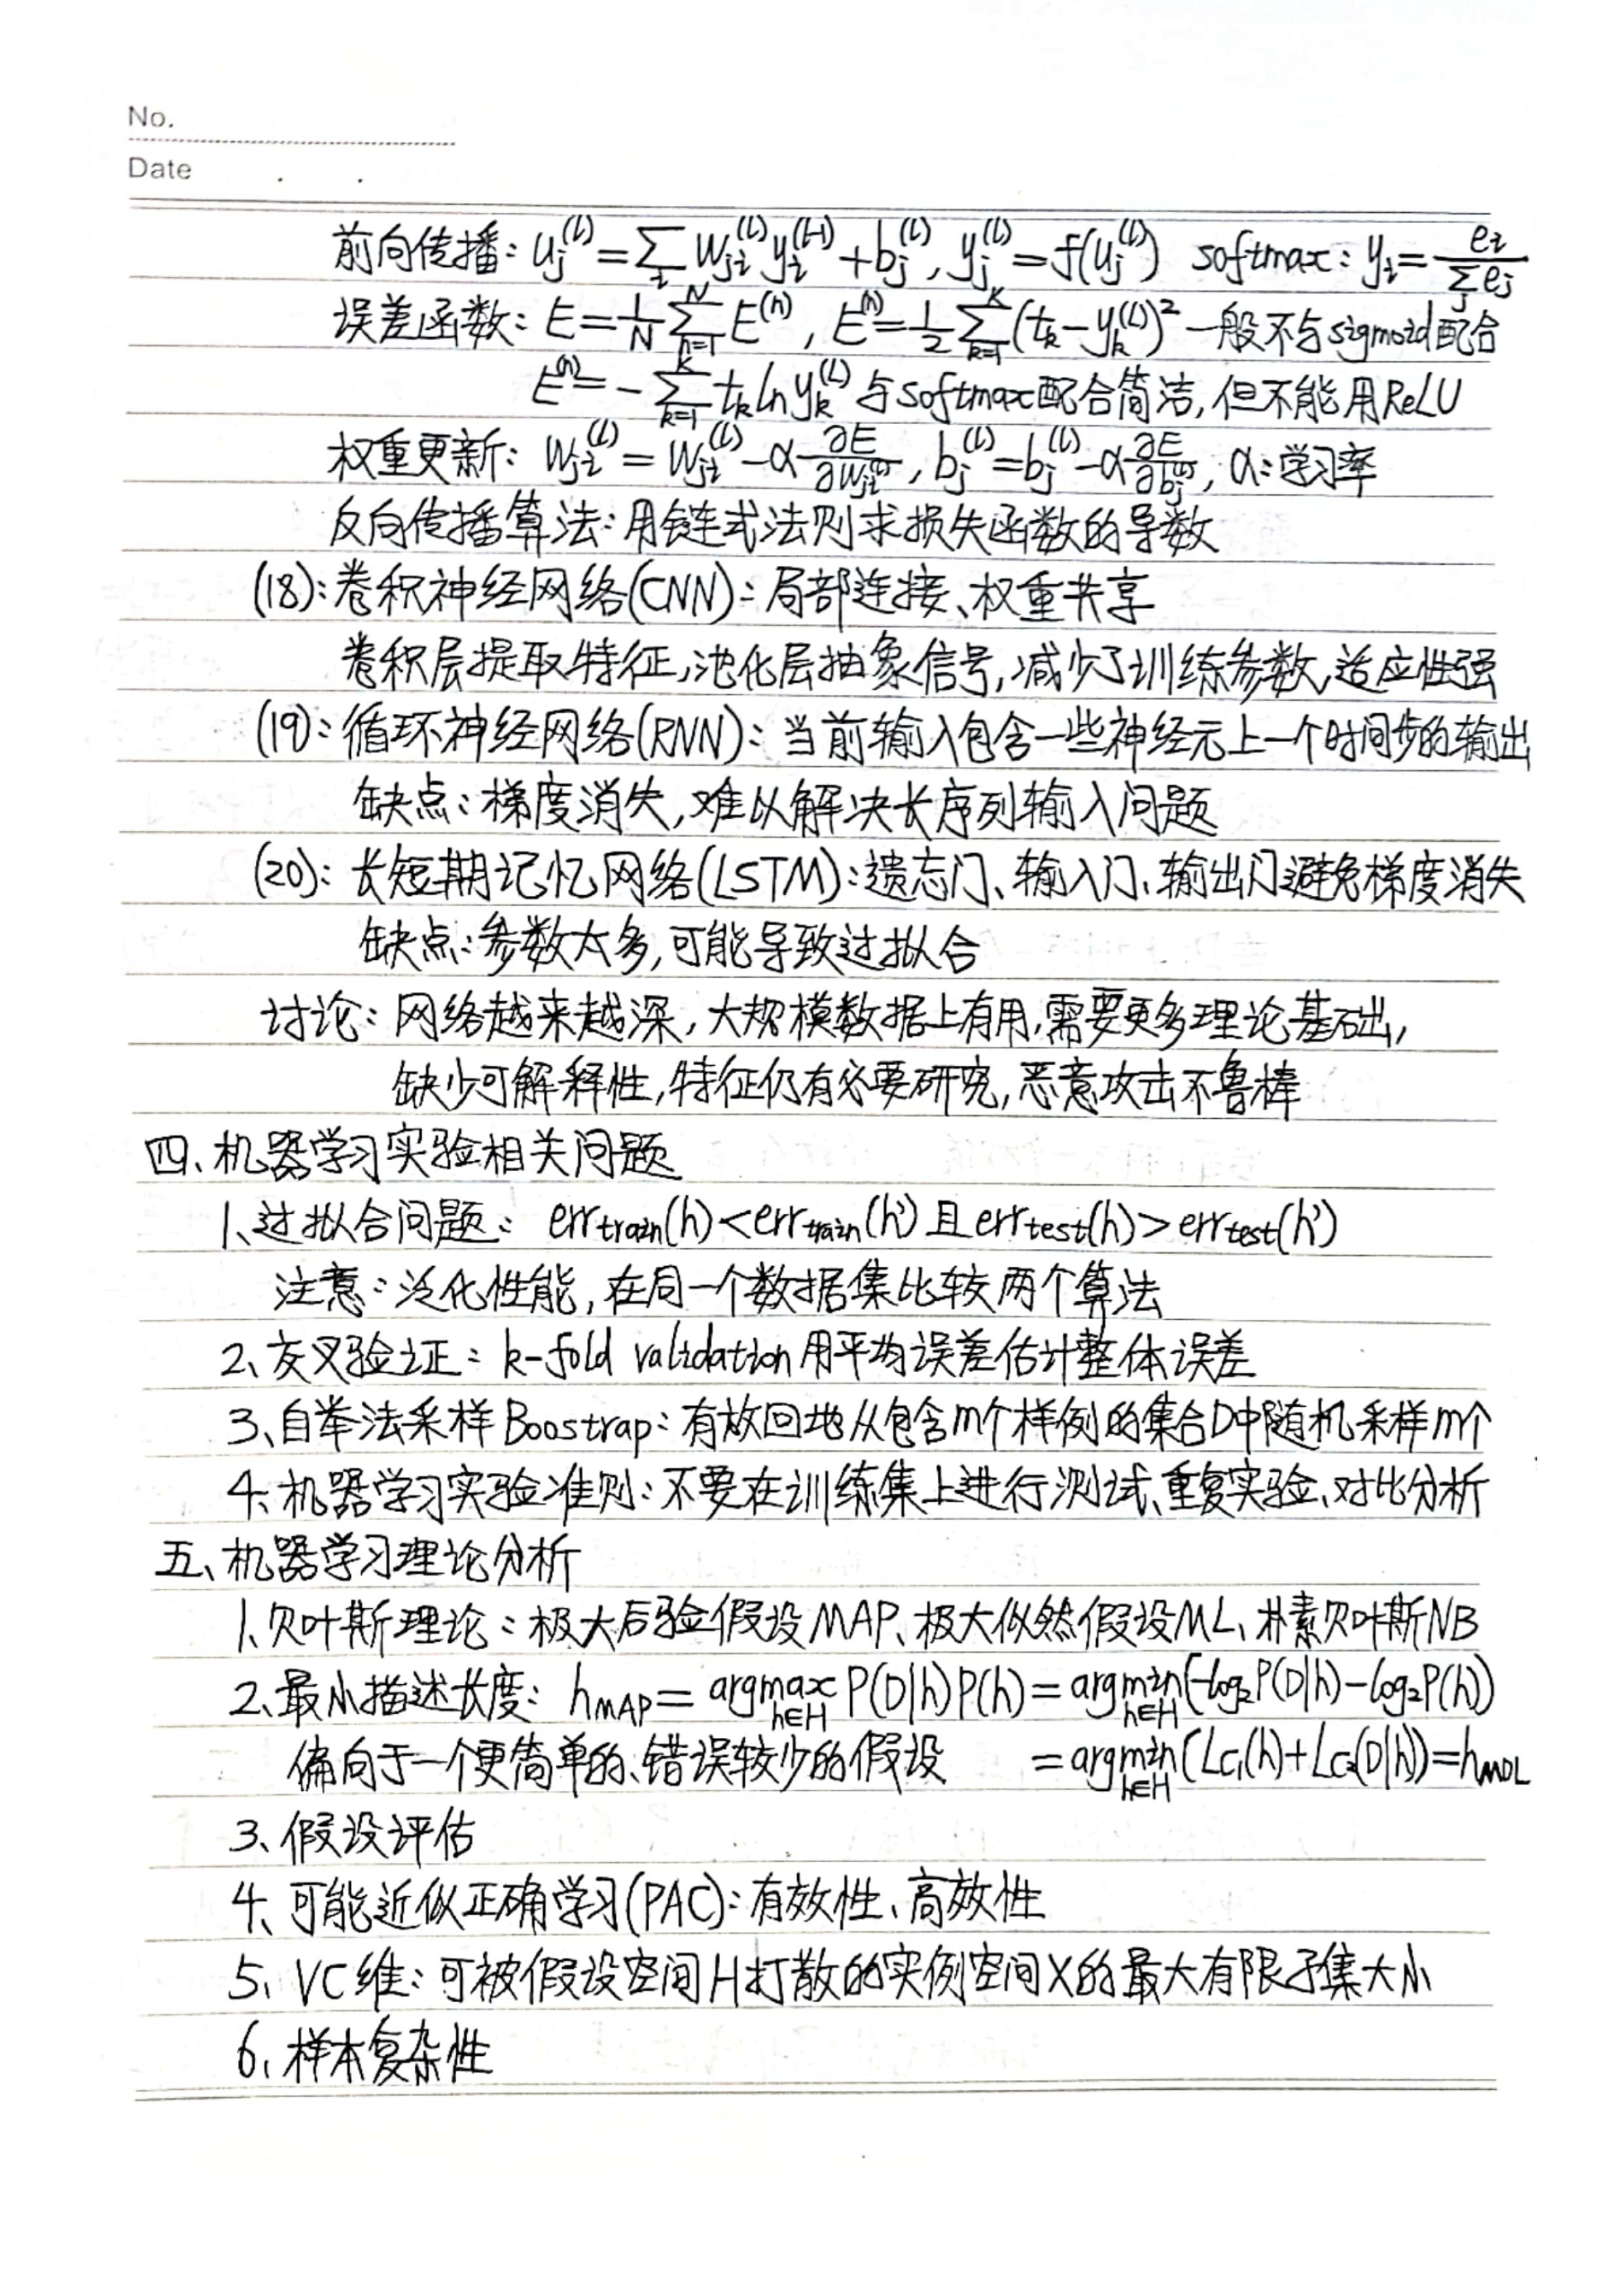 No.
Date . .
前向传播: uj^(l) = Σ_i Wji^(l) yi^(l-1) + bj^(l), yj^(l) = f(uj^(l)) softmax: yi = ei / Σ_j ej
误差函数: E = 1/N Σ_{n=1}^N E^(n), E^(n) = 1/2 Σ_{k=1}^K (tk - yk^(L))² 一般不与sigmoid配合
E^(n) = - Σ_{k=1}^K tk ln yk^(L) 与softmax配合简洁, 但不能用ReLU
权重更新: Wji^(l) = Wji^(l) - α ∂E/∂Wji^(l), bj^(l) = bj^(l) - α ∂E/∂bj^(l), α: 学习率
反向传播算法: 用链式法则求损失函数的导数
(18): 卷积神经网络(CNN): 局部连接、权重共享
卷积层提取特征, 池化层抽象信号, 减少了训练参数, 适应性强
(19): 循环神经网络(RNN): 当前输入包含一些神经元上一个时间步的输出
缺点: 梯度消失, 难以解决长序列输入问题
(20): 长短期记忆网络(LSTM): 遗忘门、输入门、输出门避免梯度消失
缺点: 参数太多, 可能导致过拟合
讨论: 网络越来越深, 大规模数据上有用, 需要更多理论基础,
缺少可解释性, 特征仍有必要研究, 恶意攻击不鲁棒
四、机器学习实验相关问题
1、过拟合问题: err_train(h) < err_train(h') 且 err_test(h) > err_test(h')
注意: 泛化性能, 在同一个数据集比较两个算法
2、交叉验证: k-fold validation 用平均误差估计整体误差
3、自举法采样Boostrap: 有放回地从包含m个样例的集合D中随机采样m个
4、机器学习实验准则: 不要在训练集上进行测试、重复实验、对比分析
五、机器学习理论分析
1、贝叶斯理论: 极大后验假设MAP、极大似然假设ML、朴素贝叶斯NB
2、最小描述长度: h_MAP = argmax_{h∈H} P(D|h)P(h) = argmin_{h∈H} (-log₂P(D|h) - log₂P(h))
偏向于一个更简单的、错误较少的假设 = argmin_{h∈H} (L_C₁(h) + L_C₂(D|h)) = h_MDL
3、假设评估
4、可能近似正确学习(PAC): 有效性、高效性
5、VC维: 可被假设空间H打散的实例空间X的最大有限子集大小
6、样本复杂性